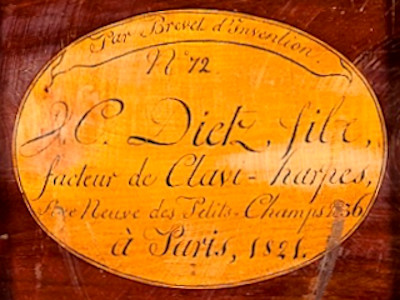 Par Brevet d'Invention.
N° 72
J. C. Dietz, fils,
facteur de Clavi-harpes,
Rue Neuve des Petits-Champs N° 36,
à Paris, 1821.